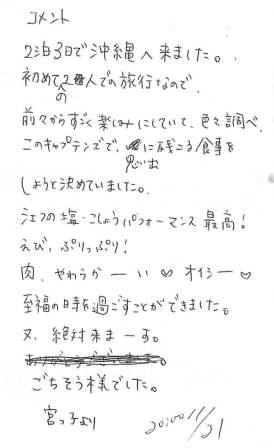 コメント
2泊3日で沖縄へ来ました。
初めての2人での旅行なので、
前々からすごく楽しみにしていて、色々調べ、
このキャプテンズで、思い出に残こる食事を
しようと決めていました。
シェフの塩・こしょうパフォーマンス最高!
えび、ぷりっぷり!
肉、やわらかーい♡オイシー♡
至福の時を過ごすことができました。
又、絶対来まーす。
ごちそう様でした。
宮っ子より
11/21